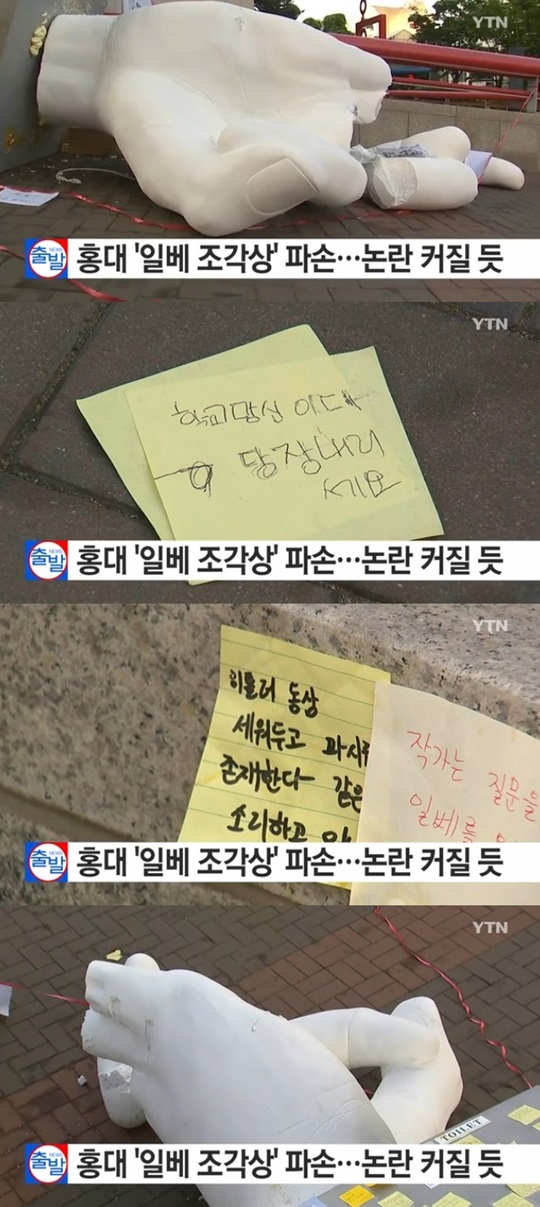 YTN
NEWS
출발
홍대 '일베 조각상' 파손…논란 커질 듯
YTN
학교망신 이다
당장내리
세요
NEWS
출발
홍대 '일베 조각상' 파손…논란 커질 듯
YTN
히틀러 동상
세워두고
존재한다 같은
소리하고
작가는 질문을
일베를
NEWS
출발
홍대 '일베 조각상' 파손…논란 커질 듯
YTN
TOILET
NEWS
출발
홍대 '일베 조각상' 파손…논란 커질 듯